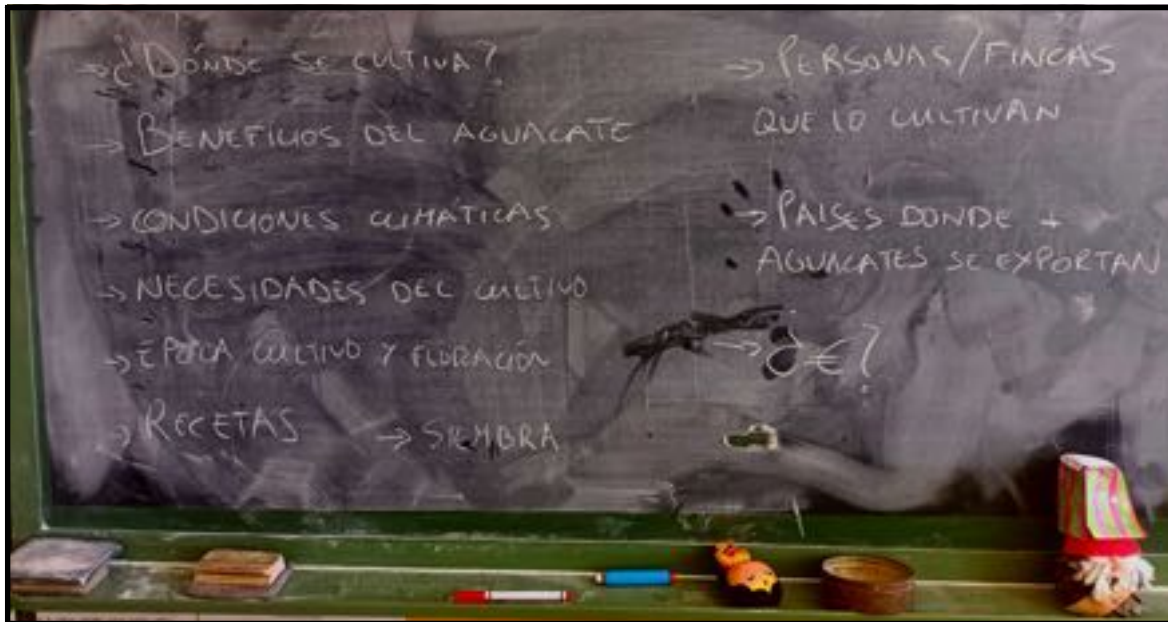 → ¿DÓNDE SE CULTIVA?
→ BENEFICIOS DEL AGUACATE
→ CONDICIONES CLIMÁTICAS
→ NECESIDADES DEL CULTIVO
→ ÉPOCA CULTIVO Y FLORACIÓN
→ RECETAS → SIEMBRA
→ PERSONAS/FINCAS
QUE LO CULTIVAN
→ PAISES DONDE +
AGUACATES SE EXPORTAN
→ ¿€?